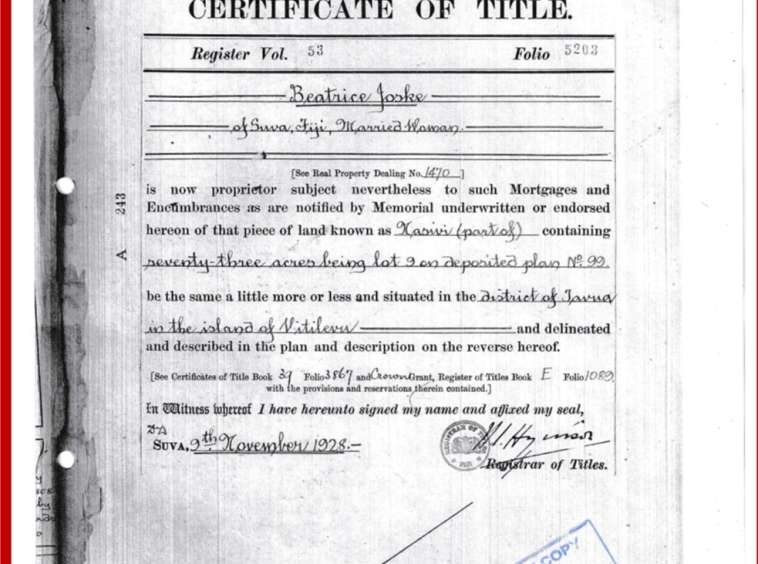 CERTIFICATE OF TITLE.
Register Vol. 53 Folio 5203
Beatrice Joske
of Suva, Fiji, Married Woman
[See Real Property Dealing No. 1470]
is now proprietor subject nevertheless to such Mortgages and
Encumbrances as are notified by Memorial underwritten or endorsed
hereon of that piece of land known as Nasivi (part of) containing
seventy-three acres being lot 9 on deposited plan No. 99
be the same a little more or less and situated in the district of Tavua
in the island of Vitilevu and delineated
and described in the plan and description on the reverse hereof.
[See Certificates of Title Book 39 Folio 3867 and Crown Grant, Register of Titles Book E Folio 1089
with the provisions and reservations therein contained.]
In Witness whereof I have hereunto signed my name and affixed my seal,
SUVA, 9th November 1928.-
Registrar of Titles.
A 243
COPY